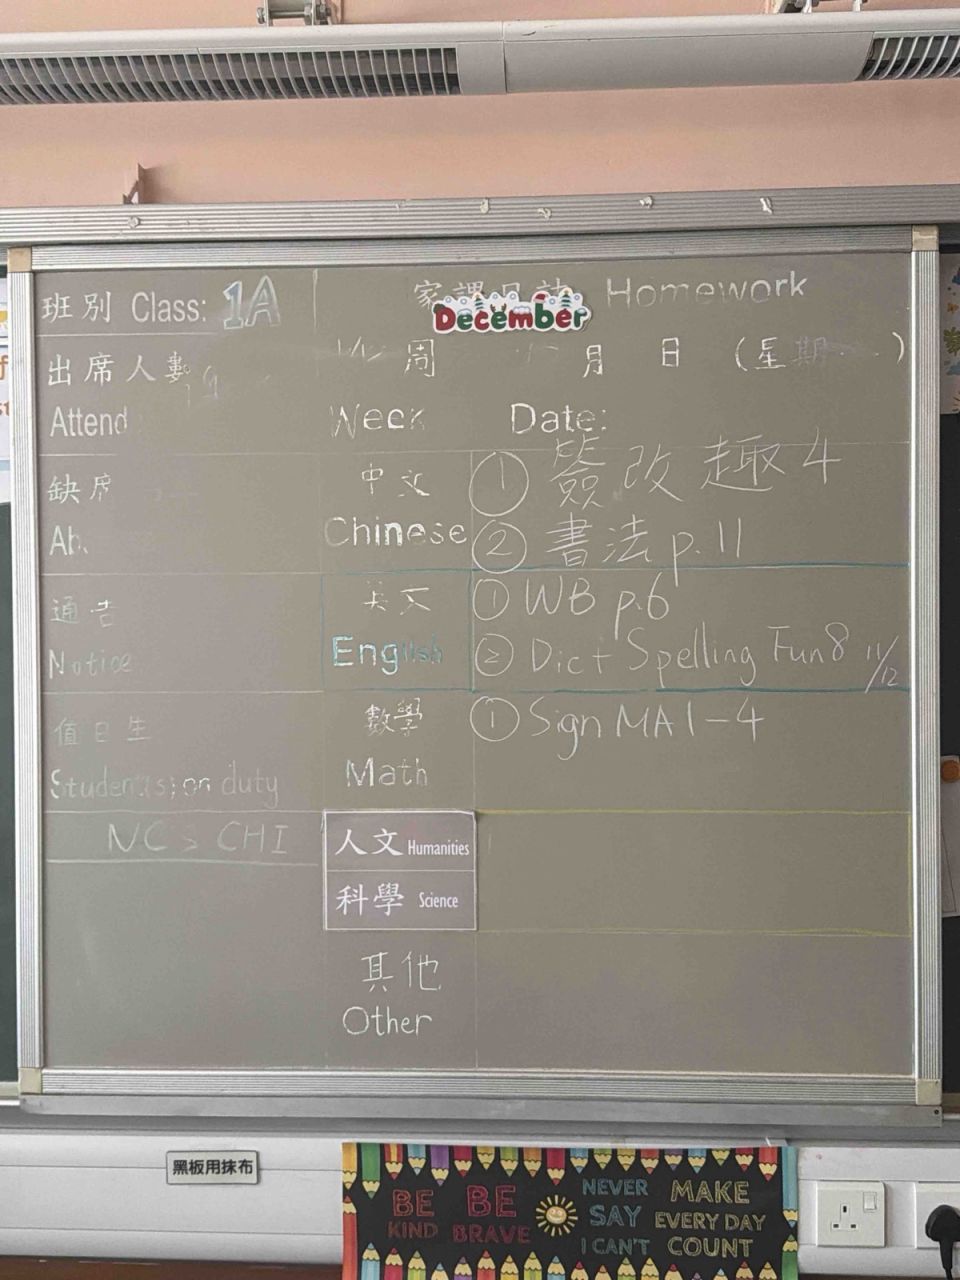 班別 Class: 1A
家課日誌 Homework
December
出席人數
周 月 日 (星期 )
Attend
Week Date:
缺席
中文
Chinese
① 簽改趣4
② 書法 p.11
通告
Notice
英文
English
① WB p.6
② Dict Spelling Fun 8 11/12
值日生
Student(s) on duty
數學
Math
① Sign MA1-4
NC > CHI
人文 Humanities
科學 Science
其他
Other
黑板用抹布
BE KIND
BE BRAVE
NEVER SAY I CAN'T
MAKE EVERY DAY COUNT